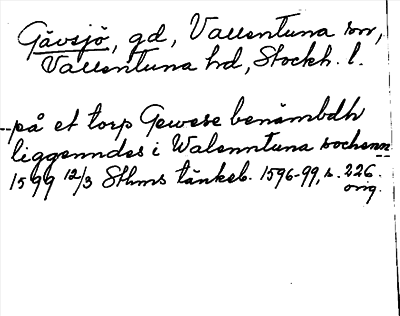 Gävsjö, gd, Vallentuna sn,
Vallentuna hd, Stockh. l.
--på et torp Gewese benämbdh
liggenndes i Walenntuna sochenn--
1599 12/3 Sthms tänkeb. 1596-99, s. 226.
orig.